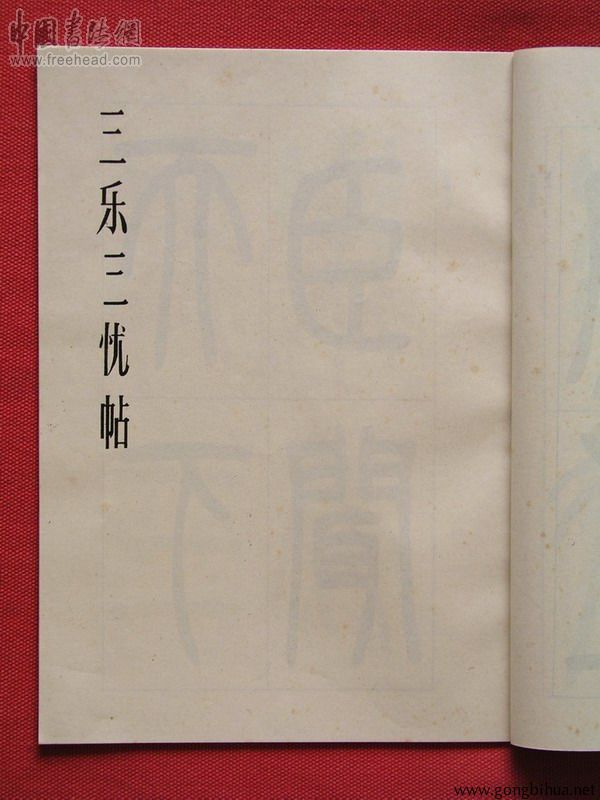 中国书法網
www.freehead.com
三乐三忧帖
www.gongbihua.net